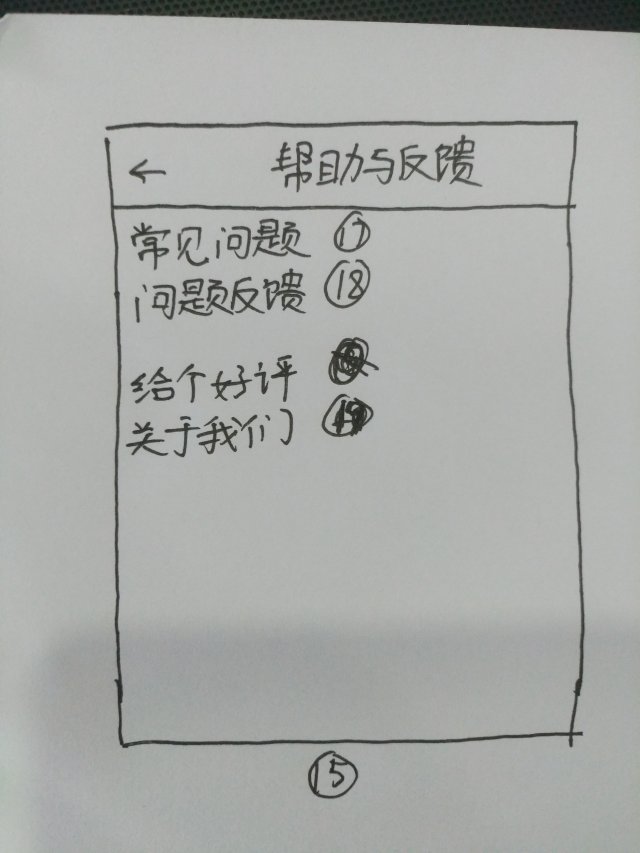 ← 帮助与反馈
常见问题 ⑰
问题反馈 ⑱
给个好评
关于我们 ⑲
⑮